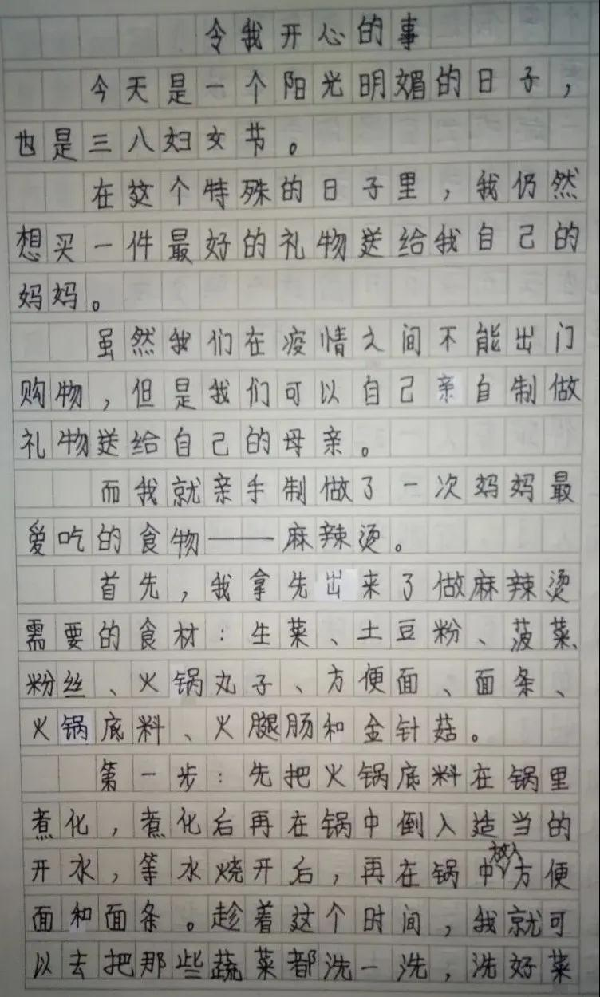 令我开心的事
今天是一个阳光明媚的日子，
也是三八妇女节。
在这个特殊的日子里，我仍然
想买一件最好的礼物送给我自己的
妈妈。
虽然我们在疫情之间不能出门
购物，但是我们可以自己亲自制做
礼物送给自己的母亲。
而我就亲手制做了一次妈妈最
爱吃的食物——麻辣烫。
首先，我拿先出来了做麻辣烫
需要的食材：生菜、土豆粉、菠菜、
粉丝、火锅丸子、方便面、面条、
火锅底料、火腿肠和金针菇。
第一步：先把火锅底料在锅里
煮化，煮化后再在锅中倒入适当的
开水，等水烧开后，再在锅中放入方便
面和面条。趁着这个时间，我就可
以去把那些蔬菜都洗一洗，洗好菜